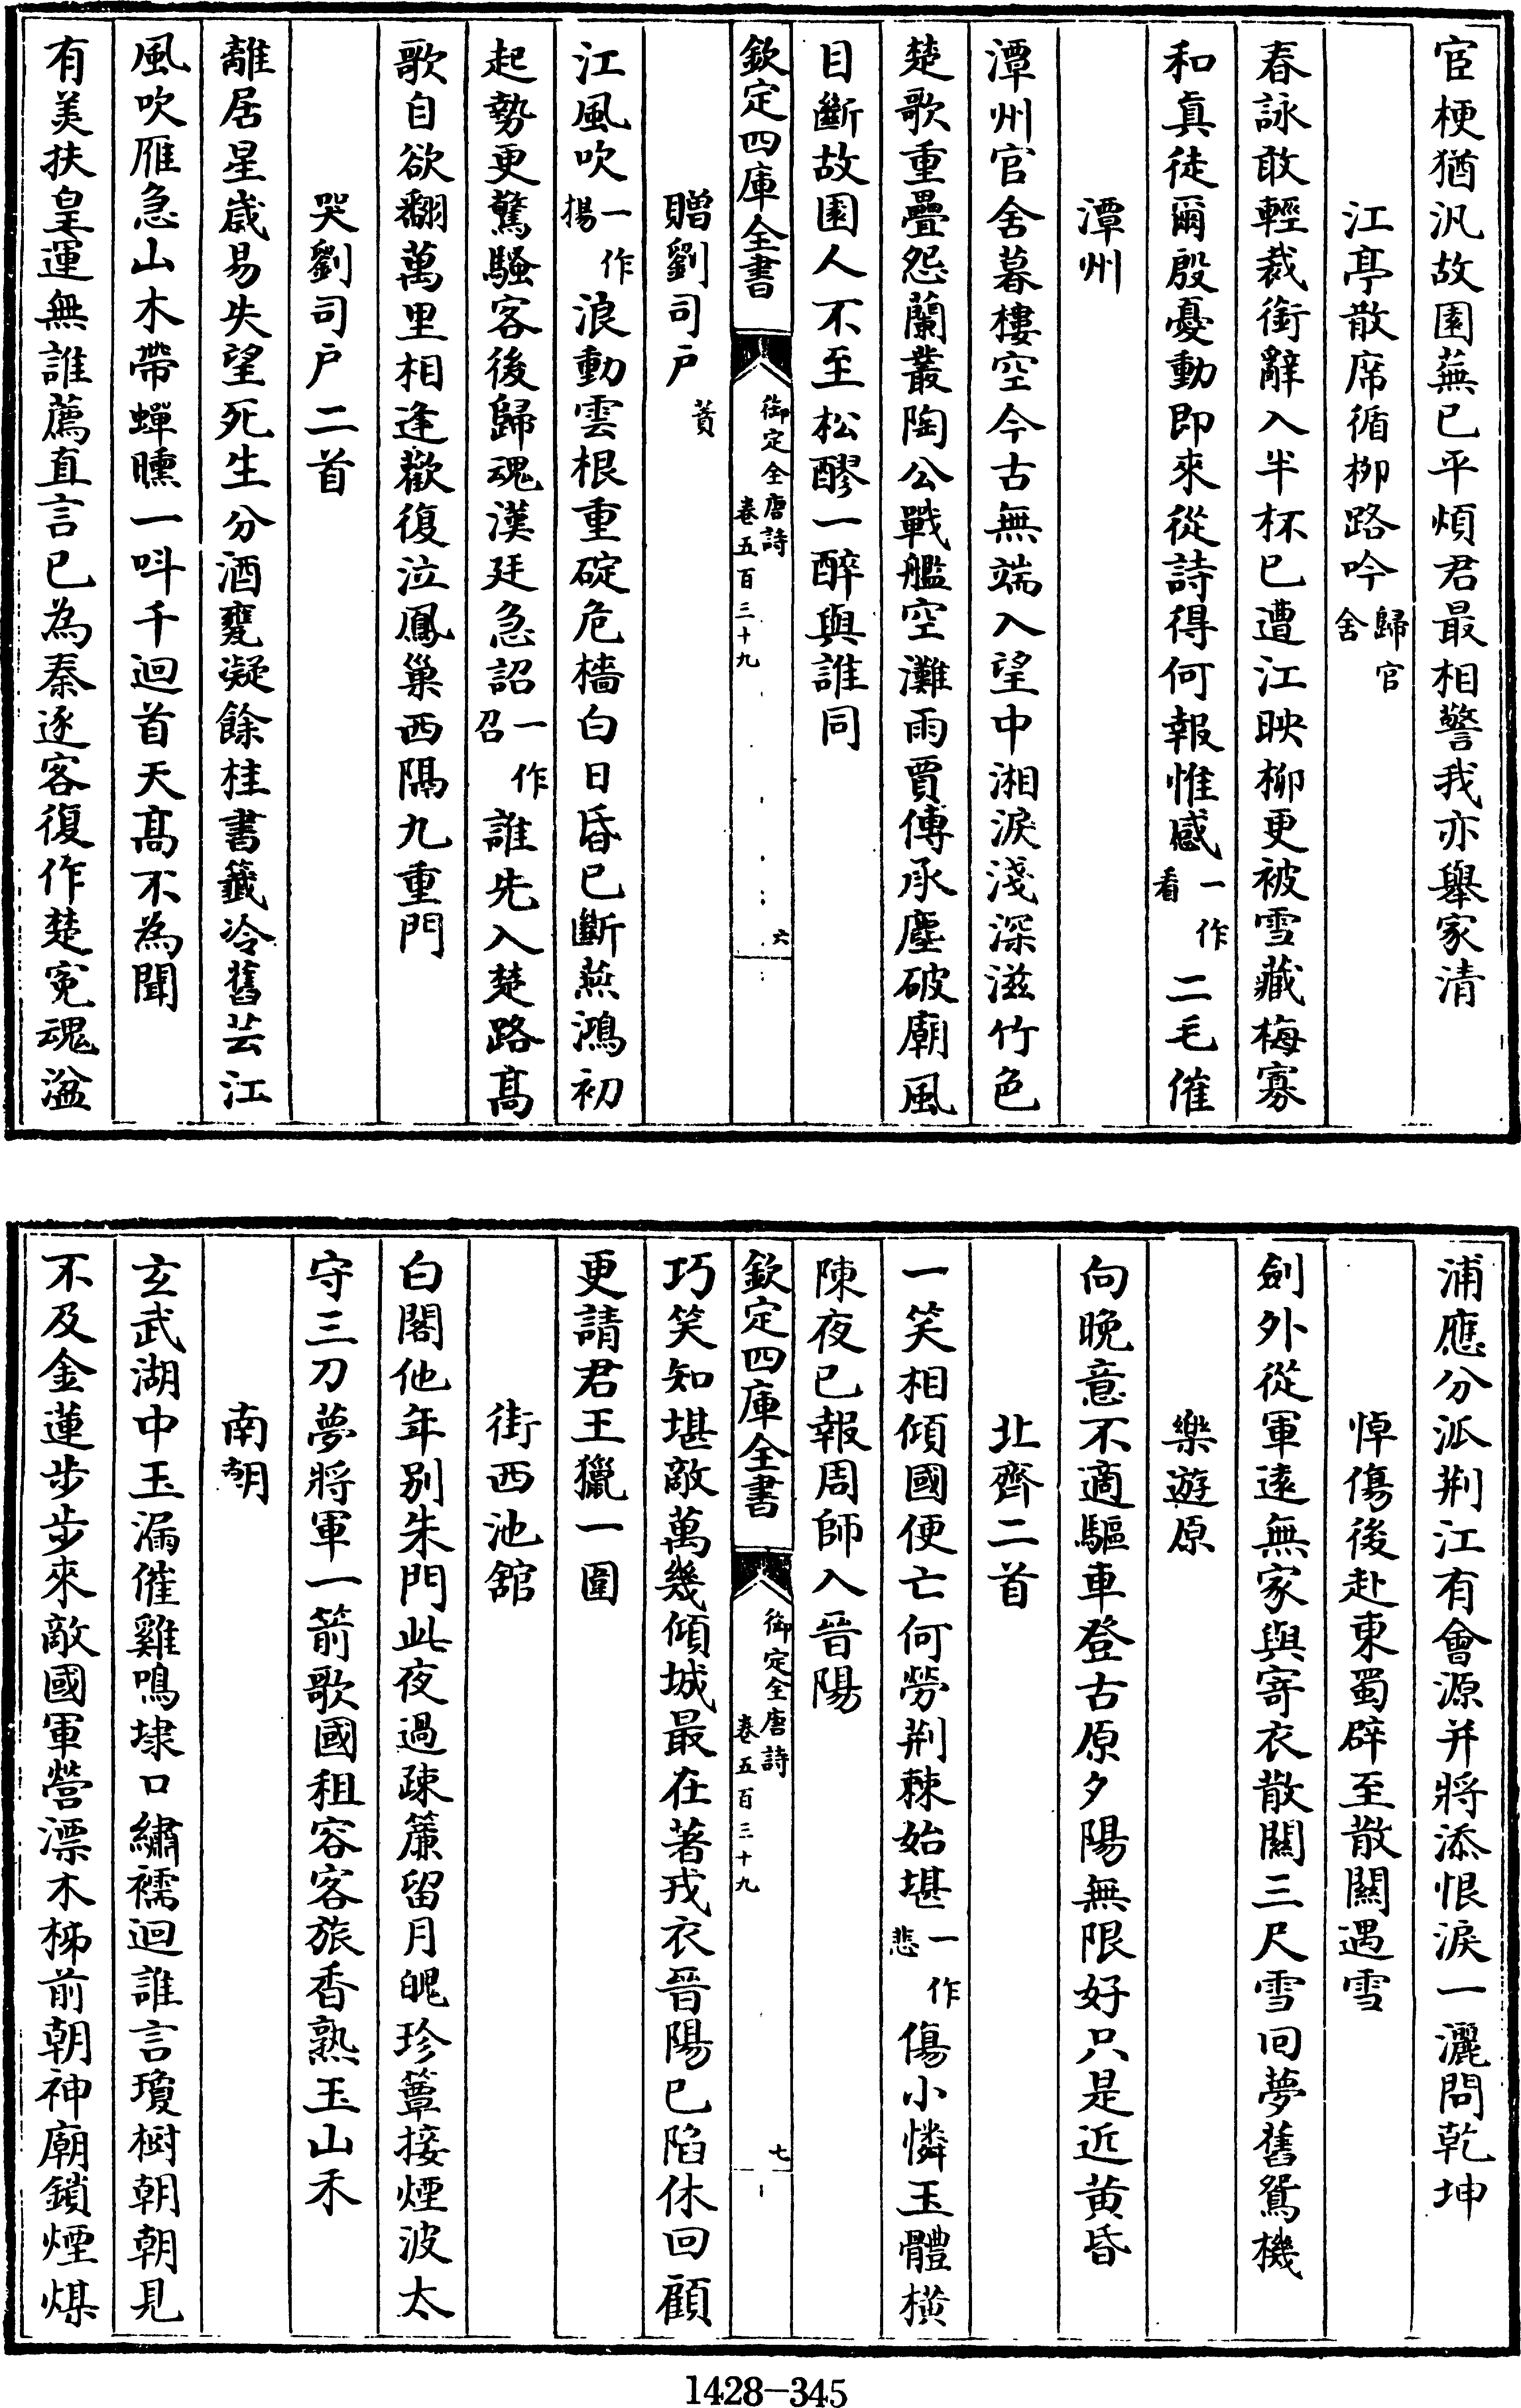 宦梗猶汎故園蕪已平煩君最相警我亦舉家清
江亭散席循柳路吟歸官舍
春詠敢輕裁銜辭入半杯已遭江映柳更被雪藏梅寡
和真徒爾殷憂動即來從詩得何報惟感一作看二毛催
潭州
潭州官舍暮樓空今古無端入望中湘淚淺深滋竹色
楚歌重疊怨蘭叢陶公戰艦空灘雨賈傅承塵破廟風
目斷故園人不至松醪一醉與誰同
欽定四庫全書 御定全唐詩卷五百三十九 六
贈劉司户蕡
江風吹一作揚浪動雲根重碇危檣白日昏已斷燕鴻初
起勢更驚騷客後歸魂漢廷急詔一作召誰先入楚路高
歌自欲翻萬里相逢歡復泣鳳巢西隔九重門
哭劉司户二首
離居星歲易失望死生分酒甕凝餘桂書籤冷舊芸江
風吹雁急山木帶蟬曛一呌千迴首天高不為聞
有美扶皇運無誰薦直言已為秦逐客復作楚寃魂湓
浦應分派荆江有會源并將添恨淚一灑問乾坤
悼傷後赴東蜀辟至散關遇雪
劍外從軍遠無家與寄衣散關三尺雪回夢舊鴛機
樂遊原
向晚意不適驅車登古原夕陽無限好只是近黄昏
北齊二首
一笑相傾國便亡何勞荆棘始堪一作悲傷小憐玉體橫
陳夜已報周師入晉陽
欽定四庫全書 御定全唐詩卷五百三十九 七
巧笑知堪敵萬幾傾城最在著戎衣晉陽已陷休回顧
更請君王獵一圍
街西池舘
白閣他年别朱門此夜過疎簾留月魄珍簟接煙波太
守三刀夢將軍一箭歌國租容客旅香熟玉山禾
南朝
玄武湖中玉漏催雞鳴埭口繡襦迴誰言瓊樹朝朝見
不及金蓮步步來敵國軍營漂木柹前朝神廟鎖煙煤
1428-345